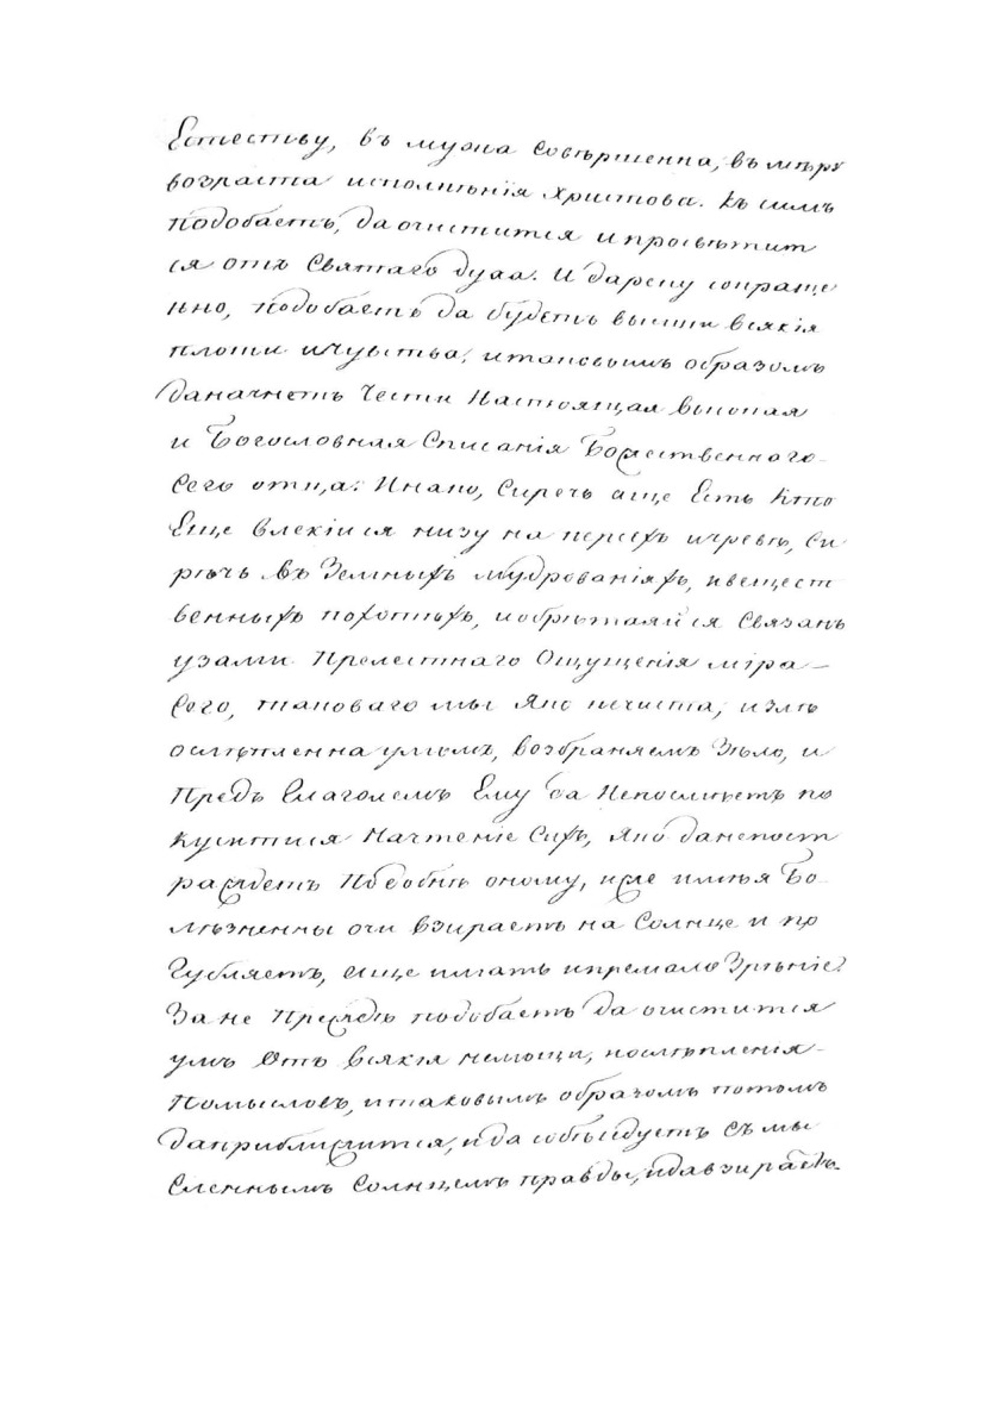 Естеству, въ мужа совѣршенна, въ мѣру
возраста исполнѣнія христова. Къ симъ
подобаетъ, да очистится и просвѣтит
ся отъ Святаго духа. И дарену сокраще
нно, подобаетъ да будетъ вышши всякія
плоти ичувства, итаковымъ образомъ
даначнетъ Чести Настоящая высокая
и Богословная Списанія Божественнаго
Сего отца: Инако, Сиречь аще Есть Кто
Еще влекійся низу на персѣхъ ичревѣ, Си
рѣчь въ Земныхъ мудрованіяхъ, ивещест
венныхъ похотѣхъ, иобрѣтаяйся Связанъ
узами Прелестнаго Ощущенія міра
Сего, таковаго мы Яко нечиста, излѣ
ослѣпленна умомъ, возбраняемъ Зѣло, и
Предъ Глаголемъ Ему да Непосмѣетъ по
куситися Начтеніе Сихъ, Яко данепост
раждетъ Подобнѣ оному, иже имѣя Бо
лѣзненны очи взираетъ на Солнце и по
Губляетъ, Еще имать ипремало Зрѣніе.
Зане Преждѣ подобаетъ да очистится
умъ Отъ всякія немощи, иослѣпленія
Помысловъ, итаковымъ образомъ потомъ
даприближится, ида собѣсѣдуетъ Съ мы
Сленнымъ Солнцемъ правды, идавзираетъ